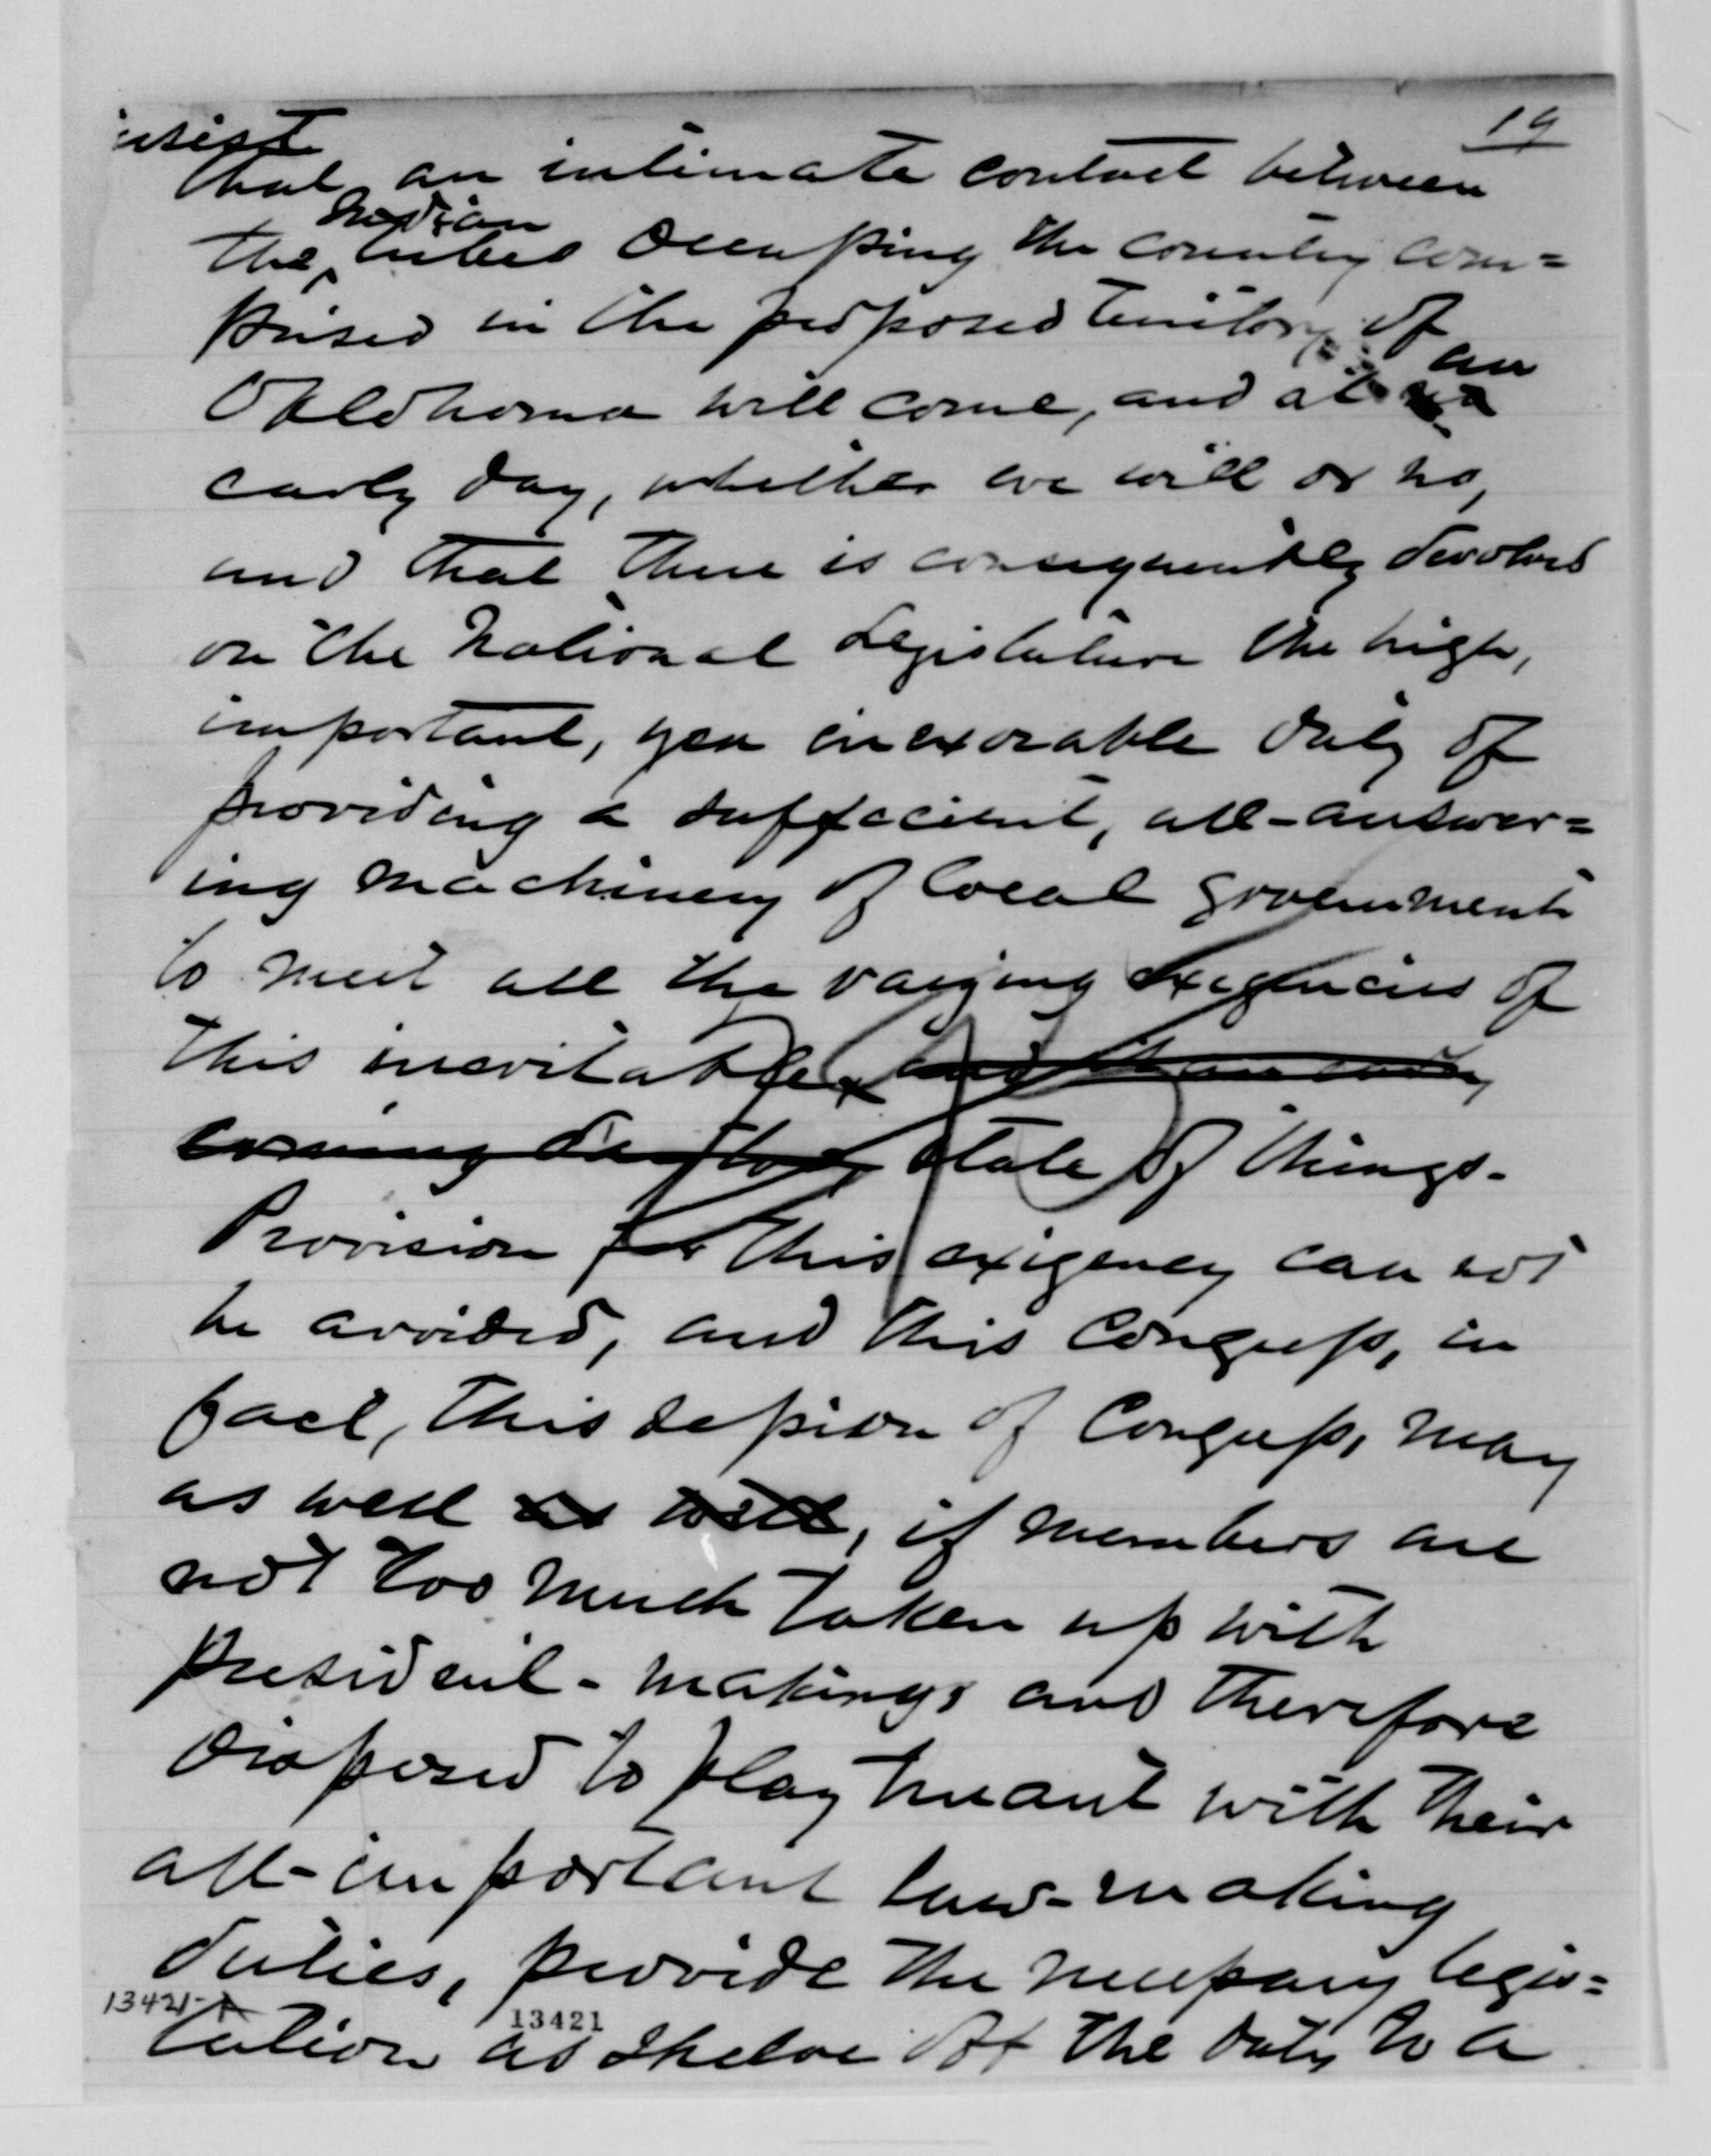 19
insist
that an intimate contact between
Indian
the ‸ tribes occupying the country com=
prised in the proposed Territory of
an
Oklohoma will come, and at
early day, whether we will or no,
and that there is consequently devolved
on the National Legislature the high,
important, yea inexorable duty of
providing a sufficient, all-answer=
ing machinery of local government
to meet all the varying exigencies of
this inevitable
coming state of things.
Provision for this exigency can not
be avoided, and this Congress, in
fact, this session of Congress, may
as well as well, if members are
not too much taken up with
President-makings and therefore
disposed to play truant with their
all-important law-making
duties, provide the necessary legis=
13421-A 13421
lation as shelve off the duty to a